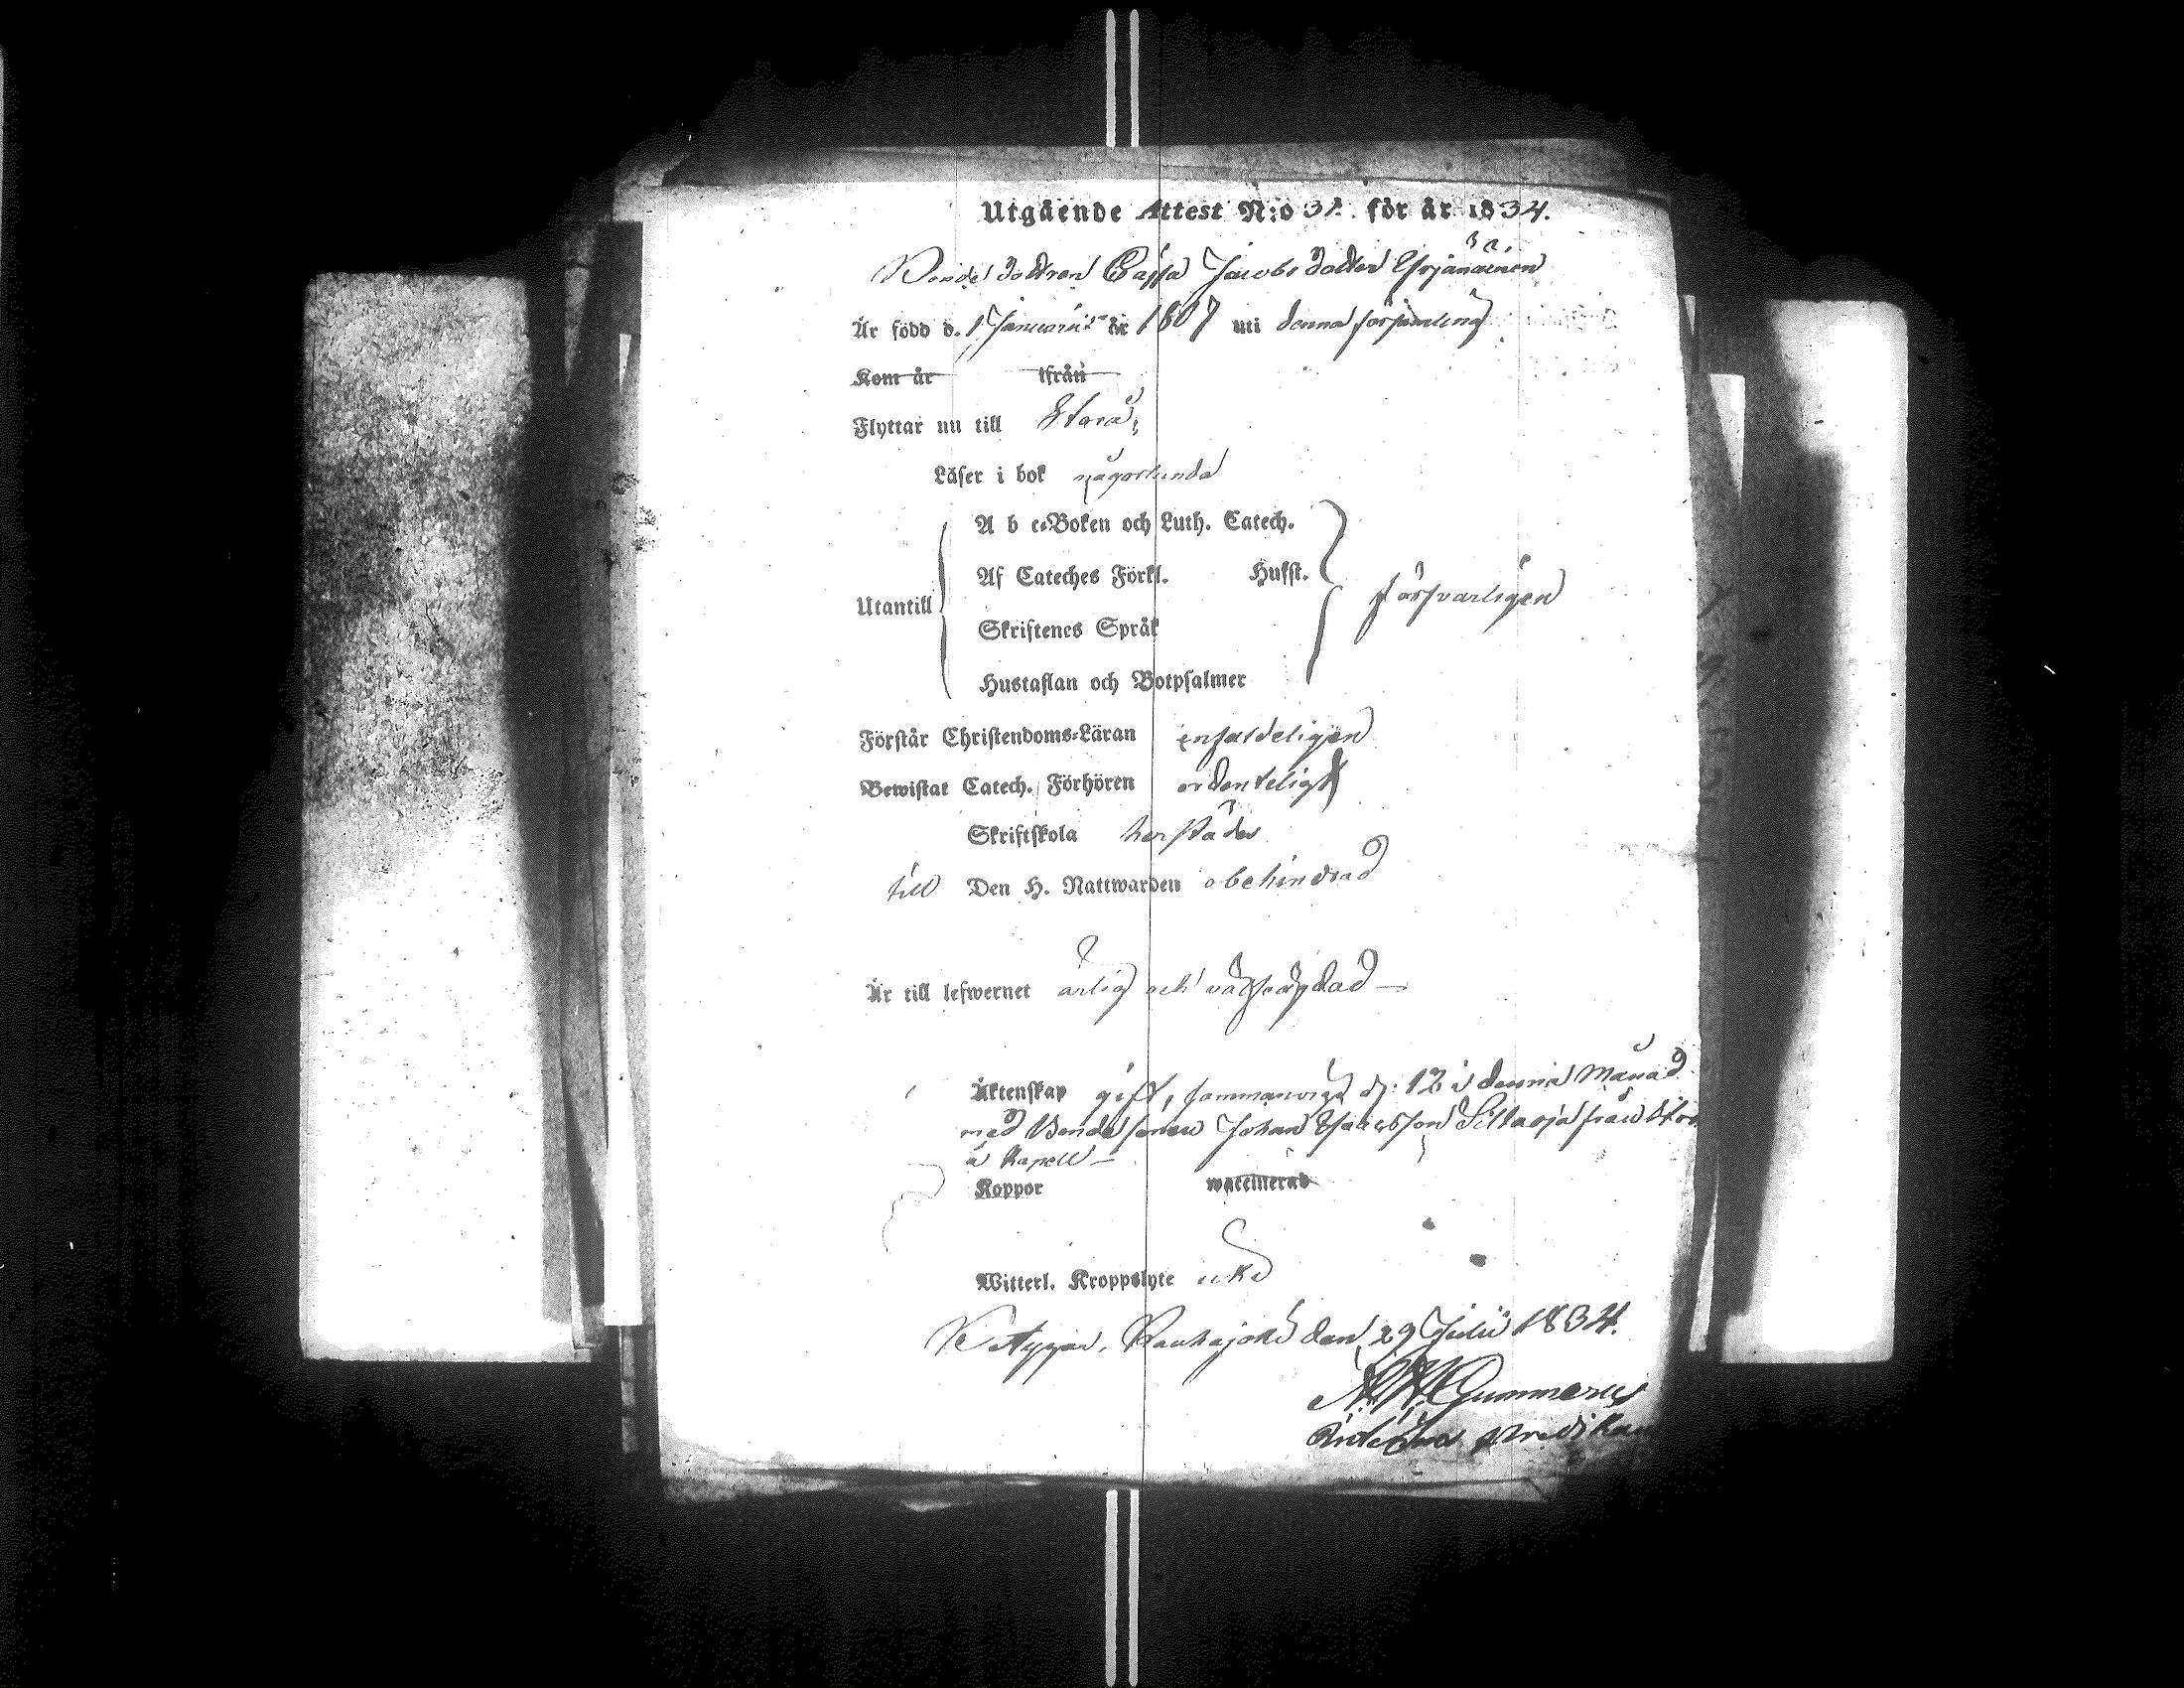 Utgående Attest N:o 31. för år 1834.
Bonde dottren Cajsa Jacobs dotter Yrjänäinen
Är född d. 1 Januarii år 1807 uti denna församling
Kom år ifrån
Flyttar nu till Storå,
Läser i bok någorlunda
A b c-Boken och Luth. Catech.
Af Cateches Förkl. Hufst.
Utantill försvarligen
Skriftenes Språk
Hustaflan och Botpsalmer
Förstår Christendoms-Läran enfaldeligen
Bewistat Catech. Förhören ordenteligt
Skriftskola herstädes
till Den H. Nattwarden obehindrad
Är till lefwernet ärlig och välfrägdad —
Äktenskap gift, sammanvigd d. 12 i denna Månad
med Bonde sonen Johan Isacsson från Stor
å Kapell —
Koppor waccinerad
Witterl. Kroppslyte icke
Kauhajoki den 29 Julii 1834.
Gummerus